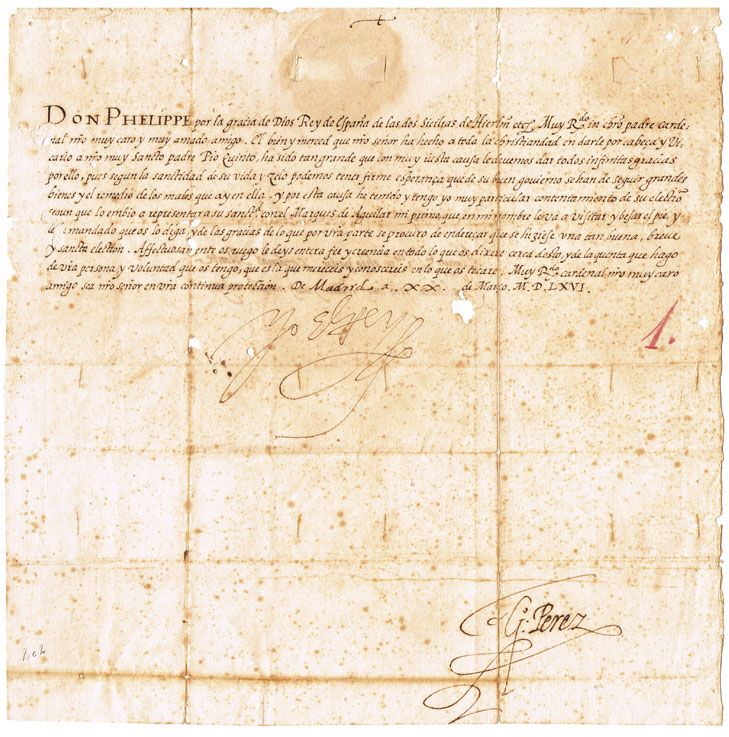 DON PHELIPPE por la gracia de Dios Rey de España de las dos Sicilias de Hierlm̄ etc̃. Muy Rdo in chr̄o padre carde-
nal nr̄o muy caro y muy amado amigo. El bien y merced que nr̄o señor ha hecho a toda la christiandad en darle por cabeça y Vi-
cario a nr̄o muy Sancto padre Pio Quinto, ha sido tan grande que con muy iusta causa le deuemos dar todos infinitas gracias
por ello, pues segun la sanctidad de su vida y zelo podemos tener firme esperança que de su buen gouierno se han de seguir grandes
bienes y el remedio de los males que ay en ella. y por esta causa he tenido y tengo yo muy particular contentamiento de su electiō
lo embio a representar a su sanctd. con el Marques de Aguilar mi que en mi nombre le va a visitar y besar el pie, y
le mandado que os lo diga, y de las gracias de lo que por vr̄a parte se procuro de endereçar que se hiziese vna tan buena, breue
y sancta election. Affectuosamente os ruego le deys entera fee y creencia en todo lo que os dixere cerca desto, y de la quenta que hago
de vr̄a persona y voluntad que os tengo, que es la que mereceis y conoscereis en lo que os tocare. Muy Rdo. cardenal nr̄o muy caro
amigo sea nr̄o señor en vr̄a continua protection. De Madrid a XX. de Março. M. D. LXVI.
Yo el Rey
1.
G. Perez